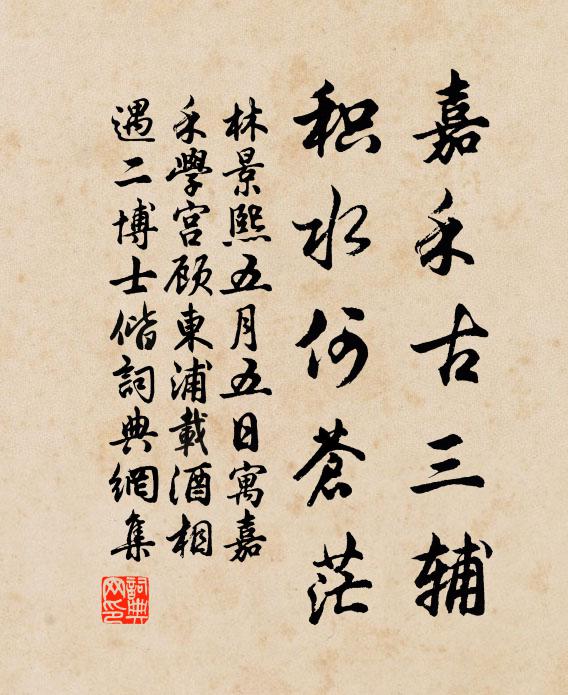 嘉禾古三辅
积水何蒼茫
林景熙五月五日寓嘉
禾學宫顾東浦載酒相
遇二博士偕詞典網集
詞典网印